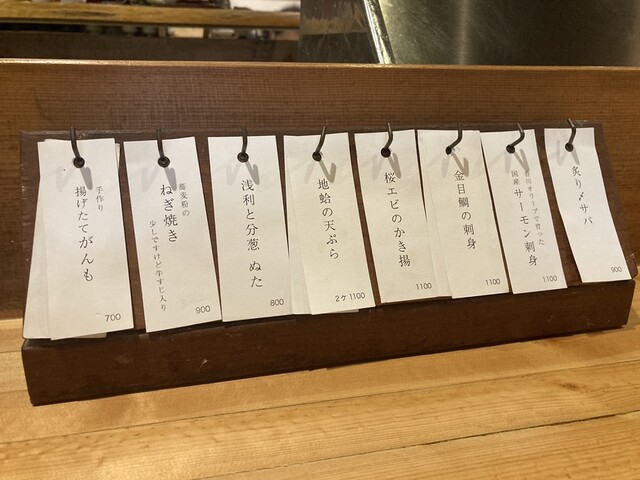 炙り〆サバ
900
川オリーブで育った
国産 サーモン刺身
1100
金目鯛の刺身
1100
桜エビのかき揚
1100
地蛤の天ぷら
2ケ1100
浅利と分葱 ぬた
800
蕎麦粉の
ねぎ焼き
少しですけど牛すじ入り
900
手作り
揚げたてがんも
700